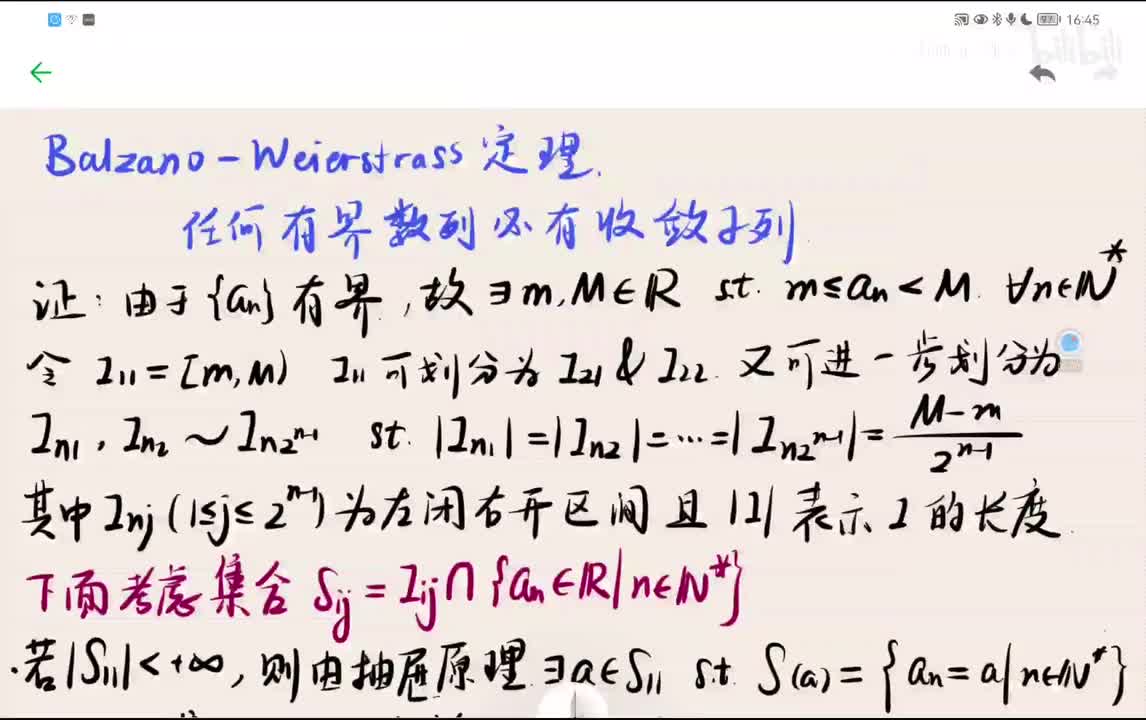 16:45
bilibili
Balzano-Weierstrass 定理.
任何有界数列必有收敛子列
证:由于{an}有界,故∃m,M∈R st. m≤an<M. ∀n∈N*
令 I11=[m,M) I11可划分为I21&I22.又可进一步划分为
In1,In2~In2^{n-1} st. |In1|=|In2|=…=|In2^{n-1}|=(M-m)/2^{n-1}
其中Inj(1≤j≤2^{n-1})为左闭右开区间且|I|表示I的长度.
下面考虑集合 Sij=Iij∩{an∈R|n∈N*}
·若|S11|<+∞,则由抽屉原理∃a∈S11 s.t. S(a)={an=a|n∈N*}